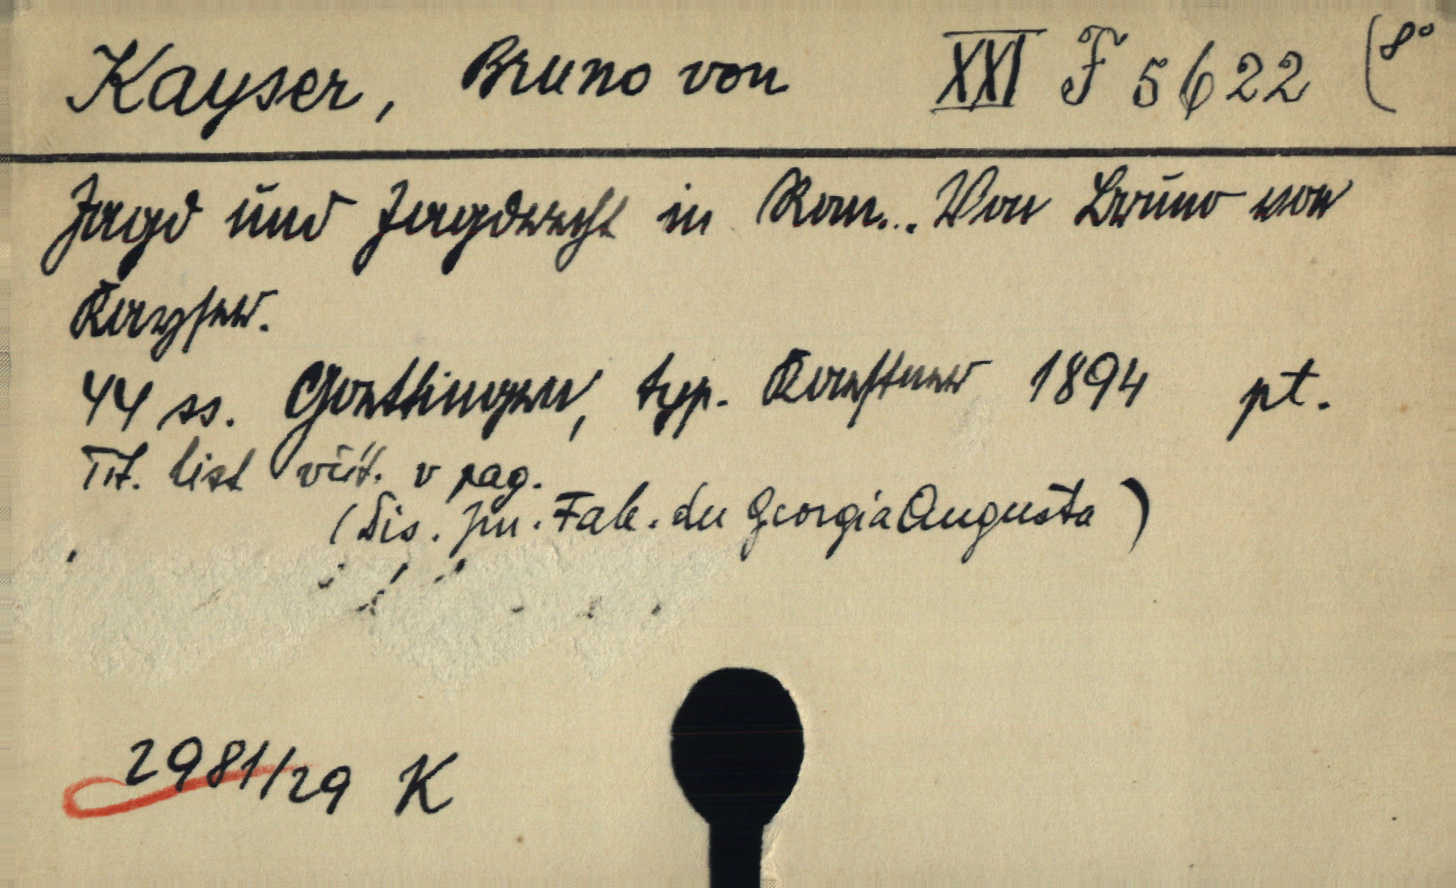 Kayser, Bruno von XXI F 5622 (8°
Jagd und Jagdrecht in Rom... Von Bruno von
Kayser.
44 ss. Goettingen, typ. Kaestner 1894 pt.
Tit. list vět. v pag.
(Dis. jur. Fak. der Georgia Augusta)
2981/29 K